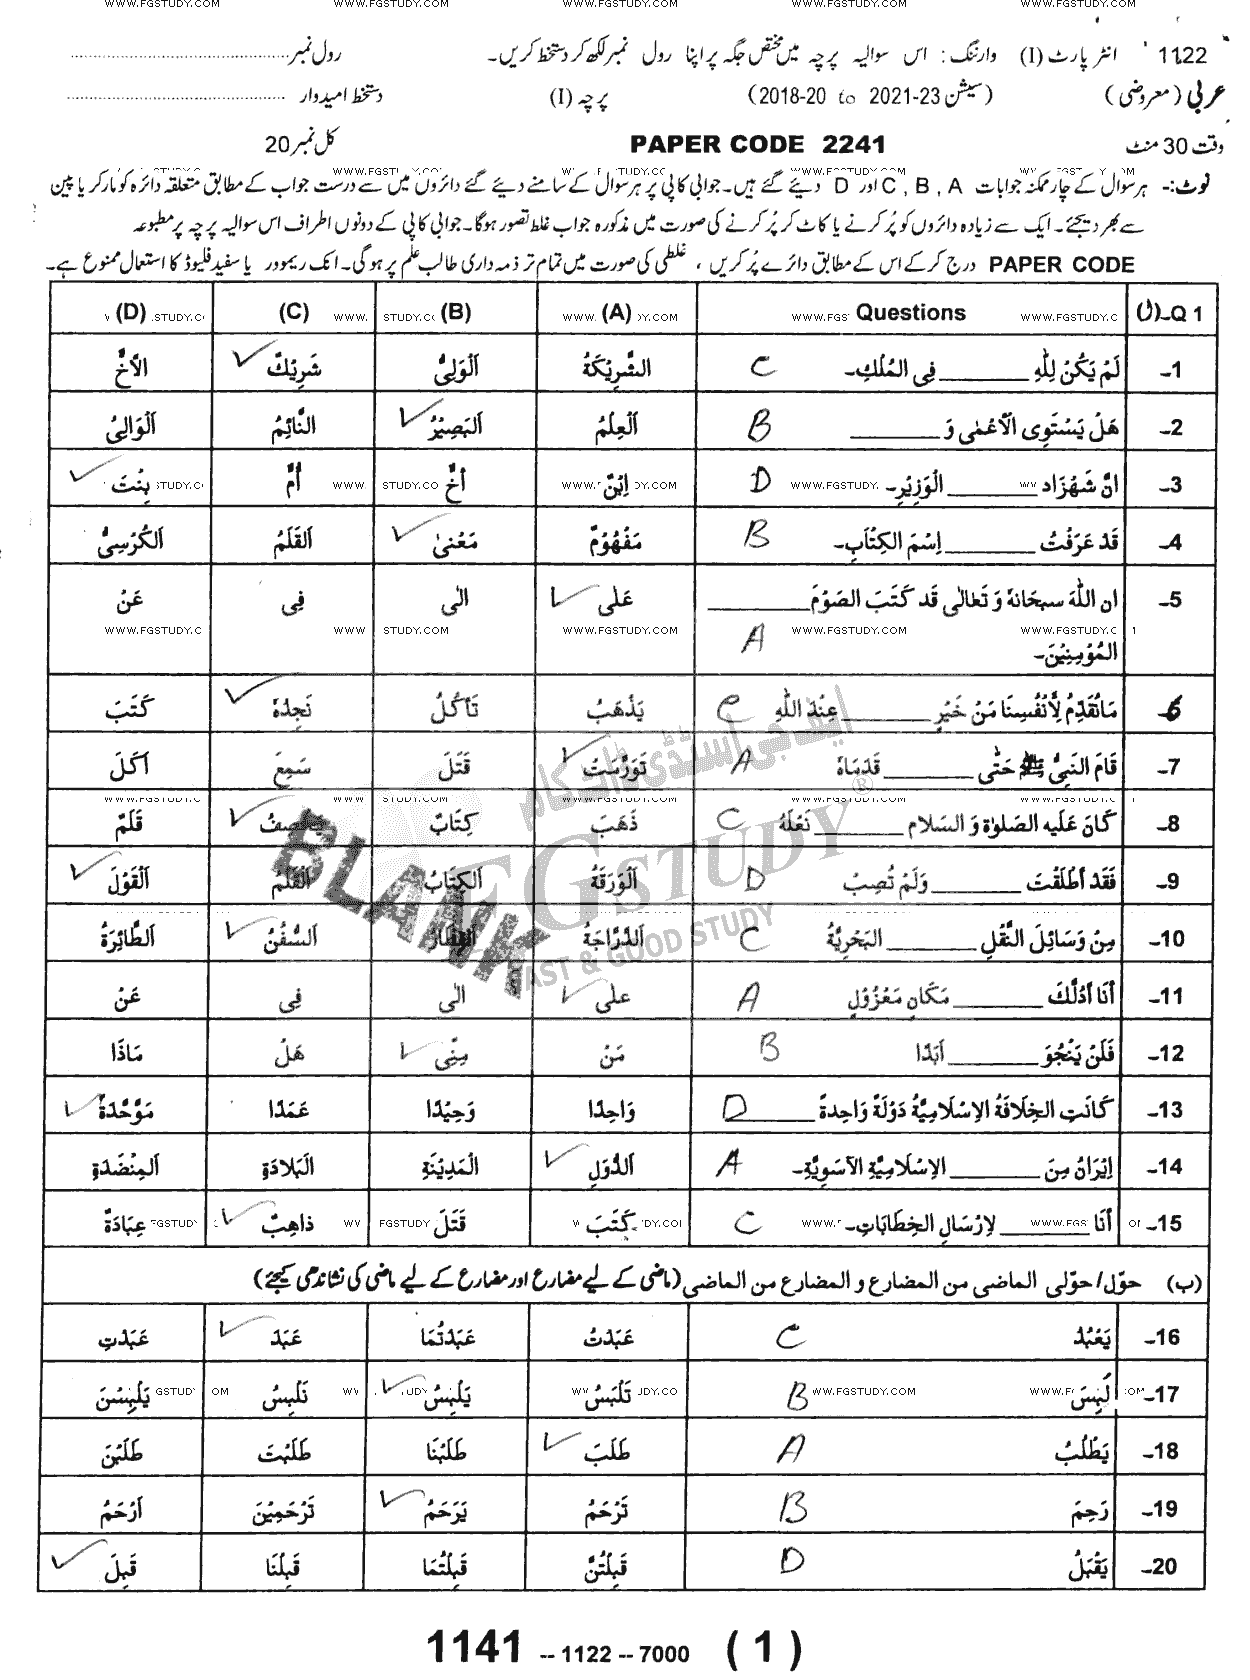 WWW.FGSTUDY.COM WWW.FGSTUDY.COM WWW.FGSTUDY.COM WWW.FGSTUDY.COM WWW.FGSTUDY.COM
1122 انٹر پارٹ (I) وارننگ: اس سوالیہ پرچہ میں مختص جگہ پر اپنا رول نمبر لکھ کر دستخط کریں۔ رول نمبر
عربی (معروضی) (سیشن 2018-20 to 2021-23) پرچہ (I) دستخط امیدوار
وقت 30 منٹ PAPER CODE 2241 کل نمبر 20
نوٹ:۔ ہر سوال کے چار ممکنہ جوابات C, B, A اور D دیئے گئے ہیں۔ جوابی کاپی پر ہر سوال کے سامنے دیئے گئے دائروں میں سے درست جواب کے مطابق متعلقہ دائرہ کو مارکر یا پین
سے بھر دیجئے۔ ایک سے زیادہ دائروں کو پُر کرنے یا کاٹ کر پُر کرنے کی صورت میں مذکورہ جواب غلط تصور ہوگا۔ جوابی کاپی کے دونوں اطراف اس سوالیہ پرچہ پر مطبوعہ
PAPER CODE درج کرکے اس کے مطابق دائرے پُر کریں، غلطی کی صورت میں تمام تر ذمہ داری طالب علم پر ہوگی۔ انک ریموور یا سفید فلیوڈ کا استعمال ممنوع ہے۔
Q 1۔(ل) Questions (A) (B) (C) (D)
1۔ لَمْ يَكُنْ لِلّٰهِ ________ فِى الْمُلْكِ۔ C الشَّرِيْكَةُ اَلْوَلِىُّ شَرِيْكٌ الْاَخُّ
2۔ هَلْ يَسْتَوِى الْاَعْمٰى وَ ________ B اَلْعِلْمُ اَلْبَصِيْرُ النَّائِمُ اَلْوَالِىُ
3۔ انَّ شَهْرْزَاد ________ الْوَزِيْرِ۔ D اِبْنٌ اَخٌّ اُمٌّ بِنْتَ
4۔ قَدْ عَرَفْتُ ________ اِسْمَ الْكِتَابِ۔ B مَفْهُوْمٌ مَعْنىٰ اَلْقَلَمُ اَلْكُرْسِىُّ
5۔ ان اللّٰهَ سبحَانَهٗ وَ تَعَالٰى قَد كَتَبَ الصَّوْمَ ________ عَلٰى الٰى فِى عَنْ
WWW.FGSTUDY.COM
A الْمُؤْمِنِيْنَ۔
6۔ مَانُقَدِّمُ لِأَنْفُسِنَا مَنْ خَيْرٍ ________ عِنْدَ اللّٰهِ C يَذْهَبُ تَأكُلُ نَجِدْهُ كَتَبَ
7۔ قَامَ النَّبِىُّ ﷺ حَتّٰى ________ قَدَمَاهُ A تَوَرَّمَتْ قَتَلَ سَمِعَ اَكَلَ
8۔ كَانَ عَلَيه الصَّلوٰة وَ السَّلَام ________ نَعْلَهٗ C ذَهَبَ كِتَابٌ يَخْصِفُ قَلَمٌ
9۔ فَقَدْ اَطْلَقْتَ ________ وَلَمْ تُصِبْ D الْوَرَقَةُ الْكِتَابُ الْقَلَمُ اَلْقَوْلَ
10۔ مِنْ وَسَائِلَ النَّقْلِ ________ الْبَحْرِيَّةُ C الدَّرَّاجَةُ السُّفُنُ اَلطَّائِرَةُ
11۔ اَنَا اَدُلُّكَ ________ مَكَانٍ مَعْزُوْلٍ A عَلٰى الٰى فِى عَنْ
12۔ فَلَنْ يَنْجُوَ ________ اَبَدًا B مَنْ مِنِّى هَلْ مَاذَا
13۔ كَانَتِ الخِلَافَةُ الإِسْلَامِيَّةُ دَوْلَةً وَاحِدةً ________ D وَاحِدًا وَحِيْدًا عَمَدًا مَوَّحَّدَةً
14۔ اِيْرَانُ مِنَ ________ الإِسْلَامِيَّةِ الآسَوِيَّةِ۔ A الدُّوَلِ الْمَدِيْنَةِ الْبَلَادَةِ الْمِنْضَدَةِ
15۔ اَنَا ________ لِاِرْسَالِ الخِطَابَاتِ۔ C كَتَبَ قَتَلَ ذَاهِبٌ عِبَادَةٌ
(ب) حوّل/حوّلى الماضى من المضارع و المضارع من الماضى (ماضی کے لیے مضارع اور مضارع کے لیے ماضی کی نشاندہی کیجئے)
16۔ يَعْبُدُ C عَبَدْتُ عَبَدْتُمَا عَبَدَ عَبَدْتِ
17۔ لَبِسَ B تَلْبَسُ يَلْبِسُ نَلْبِسُ يَلْبِسْنَ
18۔ يَطْلُبُ A طَلَبَ طَلَبْنَا طَلَبْتَ طَلَبْنَ
19۔ رَحِمَ B تَرْحَمُ يَرْحَمُ تَرْحَمِيْنَ اَرْحَمُ
20۔ يَقْبَلُ D قَبِلْتُنَّ قَبِلْتُمَا قَبِلْنَا قَبِلَ
ایف جی اسٹڈی ڈاٹ کام
FGSTUDY ®
FAST & GOOD STUDY
BLANK
1141 -- 1122 -- 7000 (1)